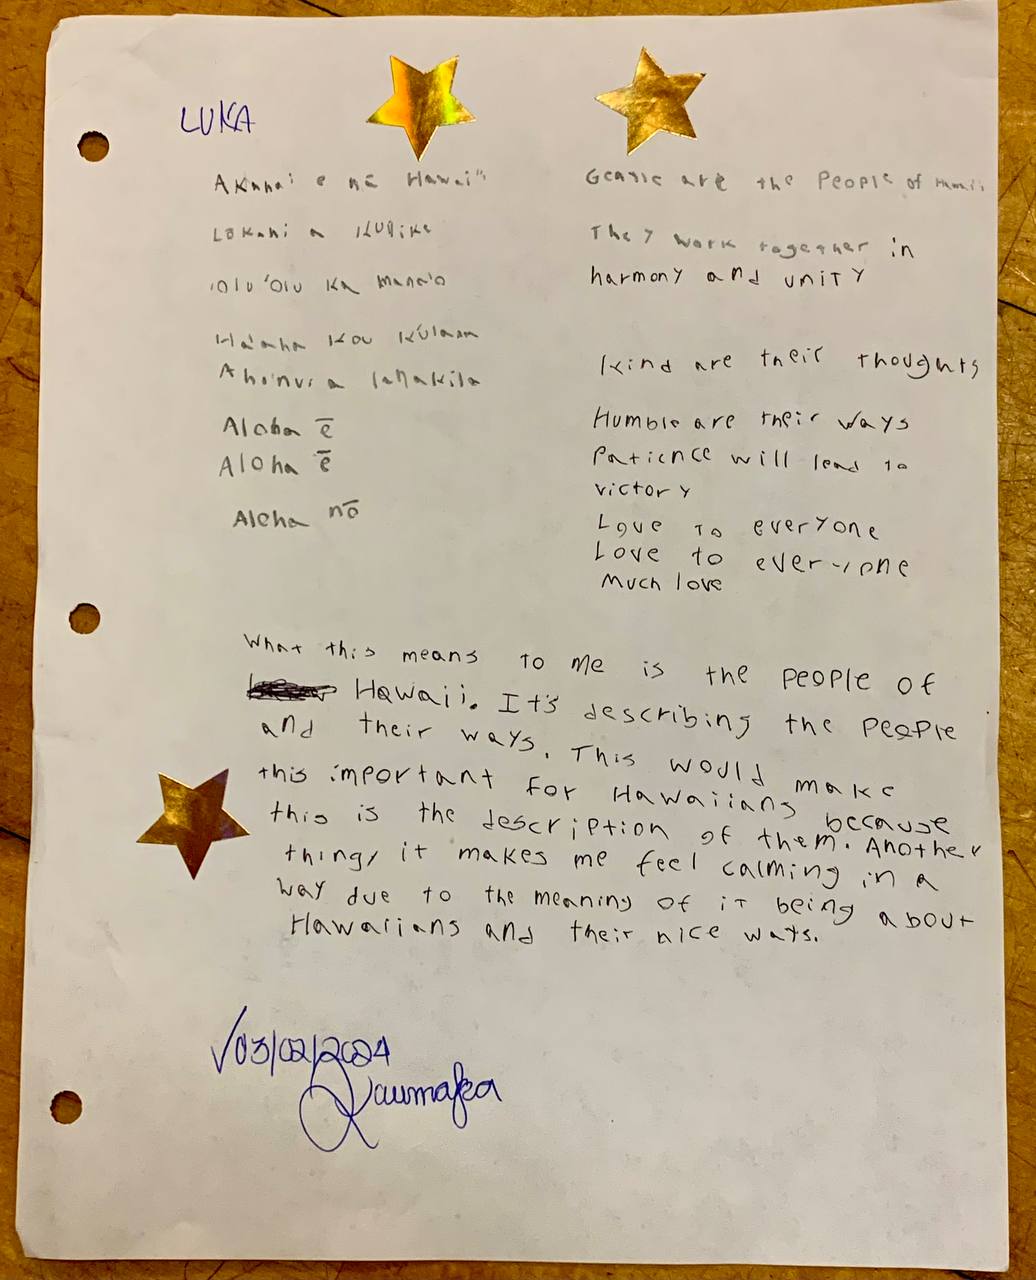 LUKA
Akahai e nā Hawai'i
Lōkahi a Kūlike
'olu'olu ka mana'o
Ha'aha kou kūlana
Ahonui a lanakila
Aloha ē
Aloha ē
Aloha nō
are the People of Hawaii
They work together in
harmony and unity
kind are their thoughts
Humble are their ways
Patience will lead to
victory
Love To everyone
Love to everyone
Much love
What this means to me is the people of
Hawaii. It's describing the people
and their ways. This would make
this important for Hawaiians because
this is the description of them. Another
thing, it makes me feel calming in a
way due to the meaning of it being about
Hawaiians and their nice ways.
√03/02/2024
Kaumaka